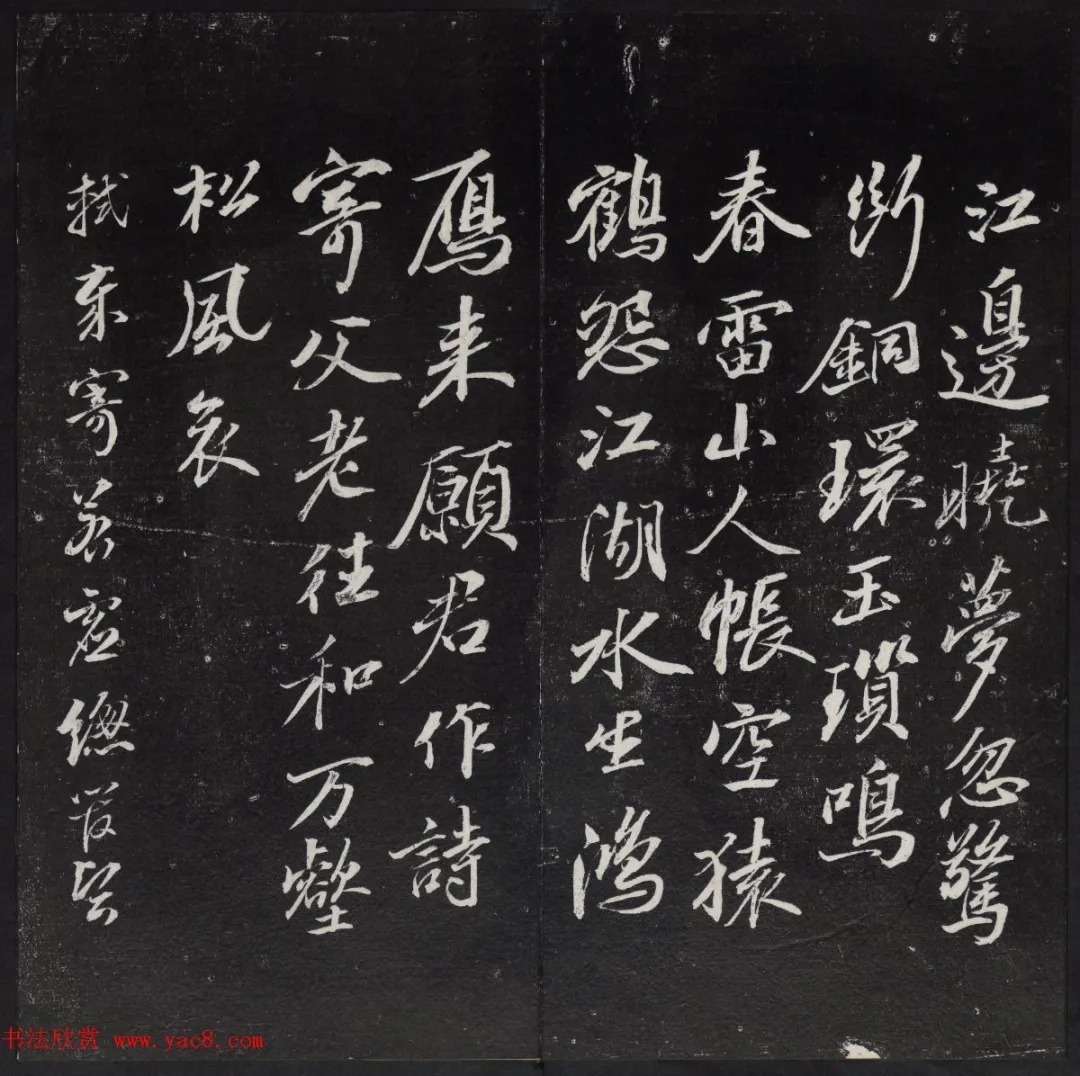 江邊曉夢忽驚
斷銅環玉瑣鳴
春雷山人帳空猿
鶴怨江湖水生鴻
鴈来願君作詩
寄父老往和万壑
松風哀
軾寄若虛總管
书法欣赏 www.yac8.com